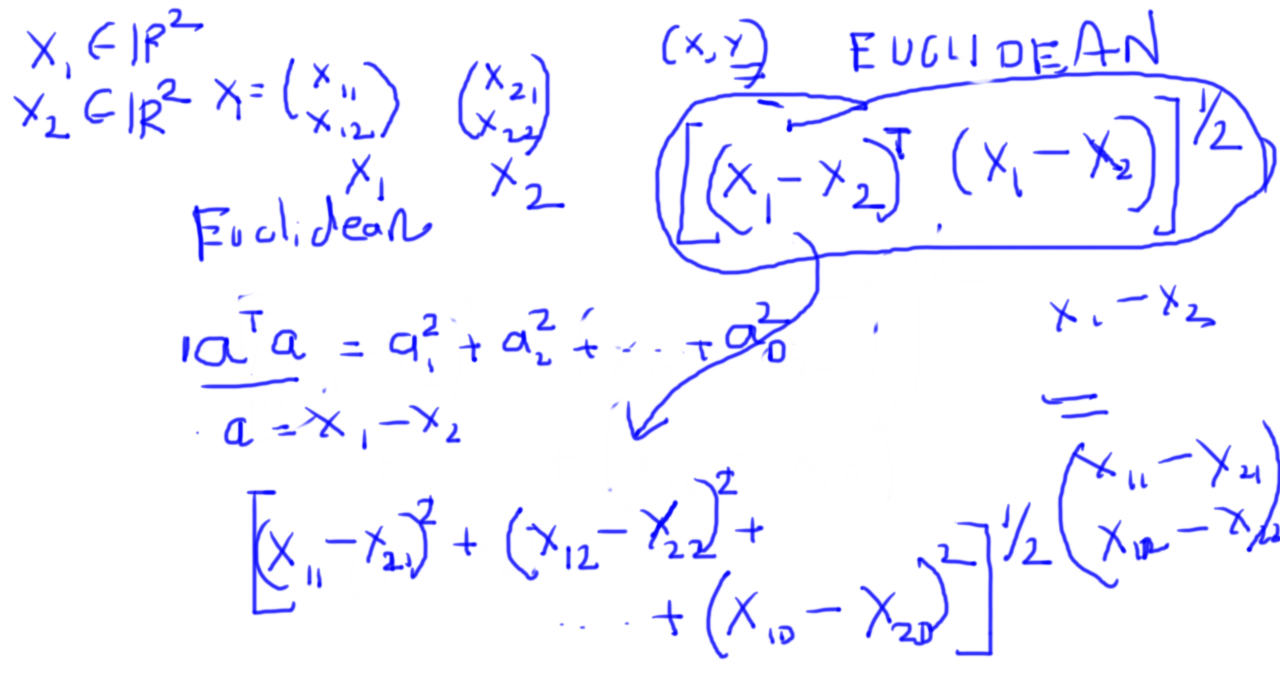 x₁ ∈ ℝ²
x₂ ∈ ℝ² x₁ = (x₁₁ x₁₂) (x₂₁ x₂₂)
x₁ x₂
Euclidean
(x, y) EUCLIDEAN
[(x₁ - x₂)ᵀ (x₁ - x₂)]^1/2
aᵀa = a₁² + a₂² + ... + a_D²
a = x₁ - x₂
x₁ - x₂
=
(x₁₁ - x₂₁
x₁₂ - x₂₂)
[(x₁₁ - x₂₁)² + (x₁₂ - x₂₂)² +
.... + (x₁D - x₂D)²]^1/2